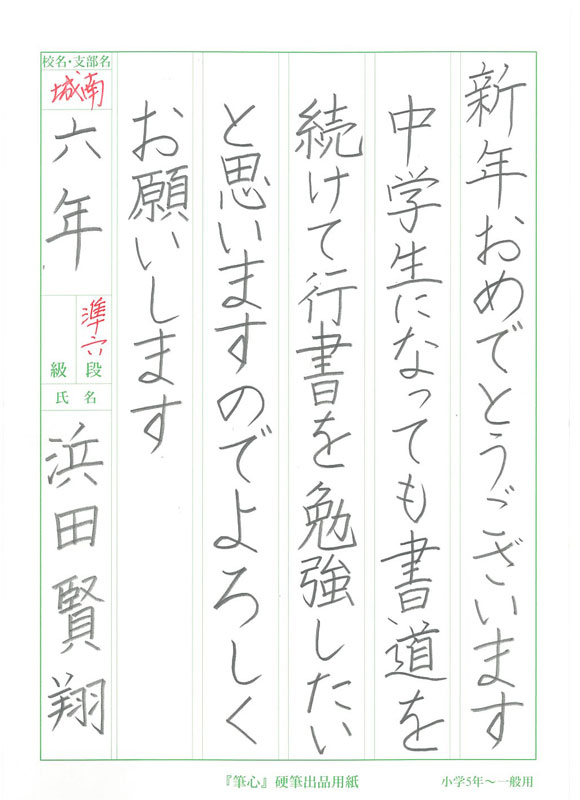 新年おめでとうございます
中学生になっても書道を
続けて行書を勉強したい
と思いますのでよろしく
お願いします
校名・支部名
城南
六年
準六
段
級
氏名
浜田賢翔
『筆心』硬筆出品用紙
小学5年〜一般用